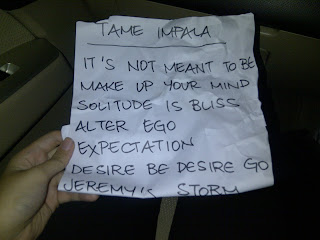 TAME IMPALA
IT'S NOT MEANT TO BE
MAKE UP YOUR MIND
SOLITUDE IS BLISS
ALTER EGO
EXPECTATION
DESIRE BE DESIRE GO
JEREMY'S STORM